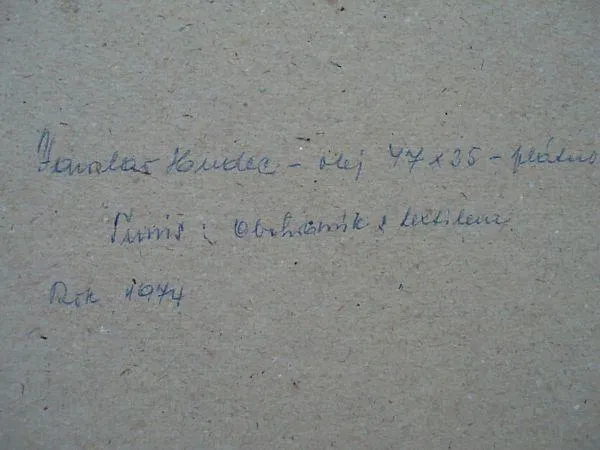 Jaroslav Hudec - olej 47 x 35 - plátno
Tunis : Obchodník s textilem
Rok 1974